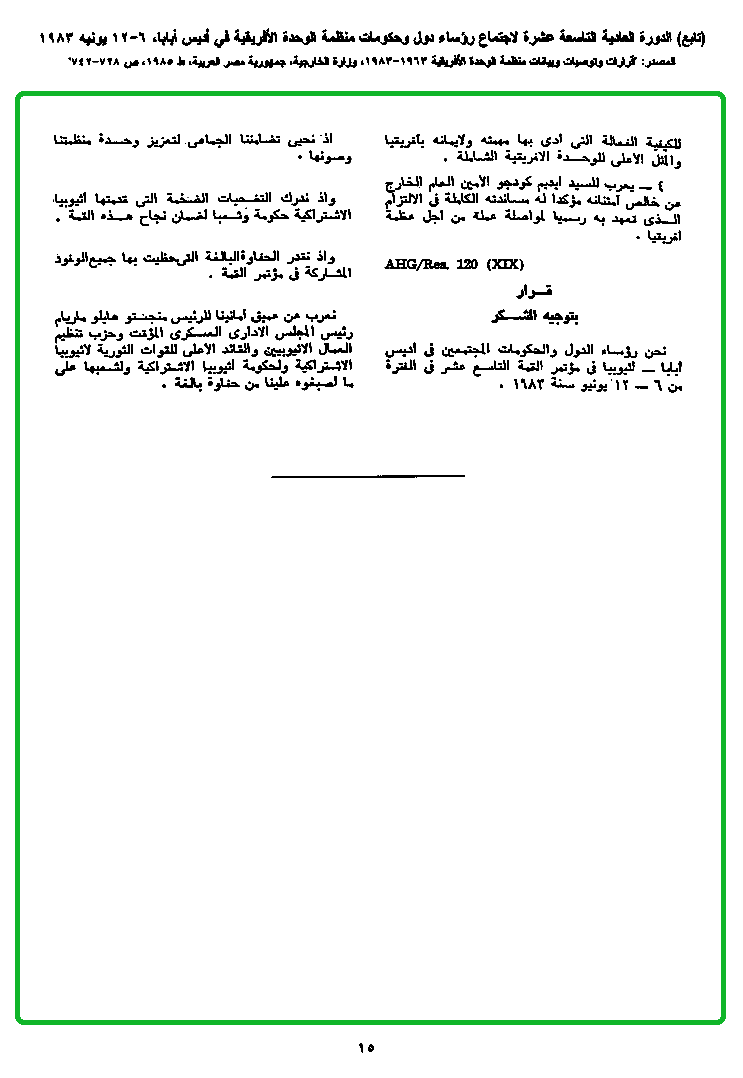 (تابع) الدورة العادية التاسعة عشرة لاجتماع رؤساء دول وحكومات منظمة الوحدة الأفريقية في أديس أبابا، ٦-١٢ يونيه ١٩٨٣
المصدر: "قرارات وتوصيات وبيانات منظمة الوحدة الأفريقية ١٩٦٣-١٩٨٣، وزارة الخارجية، جمهورية مصر العربية، ط ١٩٨٥، ص ٧٢٨-٧٤٢"
للكيفية الفعالة التى أدى بها مهمته ولايمانه بأفريقيا
والمثل الأعلى للوحدة الافريقية الشاملة .
٤ — يعرب للسيد ايديم كودجو الأمين العام الخارج
عن خالص امتنانه مؤكدا له مساندته الكاملة فى الالتزام
الذى تعهد به رسميا لمواصلة عمله من أجل عظمة
افريقيا .
AHG/Res. 120 (XIX)
قرار
بتوجيه الشكر
نحن رؤساء الدول والحكومات المجتمعين فى أديس
أبابا — اثيوبيا فى مؤتمر القمة التاسع عشر فى الفترة
من ٦ — ١٢ يونيو سنة ١٩٨٣ .
اذ نحيى تضامننا الجماعى لتعزيز وحدة منظمتنا
وصونها .
واذ ندرك التضحيات الضخمة التى قدمتها أثيوبيا
الاشتراكية حكومة وشعبا لضمان نجاح هذه القمة .
واذ نقدر الحفاوة البالغة التى حظيت بها جميع الوفود
المشاركة فى مؤتمر القمة .
نعرب عن عميق أمانينا للرئيس منجستو هايلو ماريام
رئيس المجلس الادارى العسكرى المؤقت وحزب تنظيم
العمال الاثيوبيين والقائد الأعلى للقوات الثورية لاثيوبيا
الاشتراكية ولحكومة اثيوبيا الاشتراكية ولشعبها على
ما أصبغوه علينا من حفاوة بالغة .
١٥